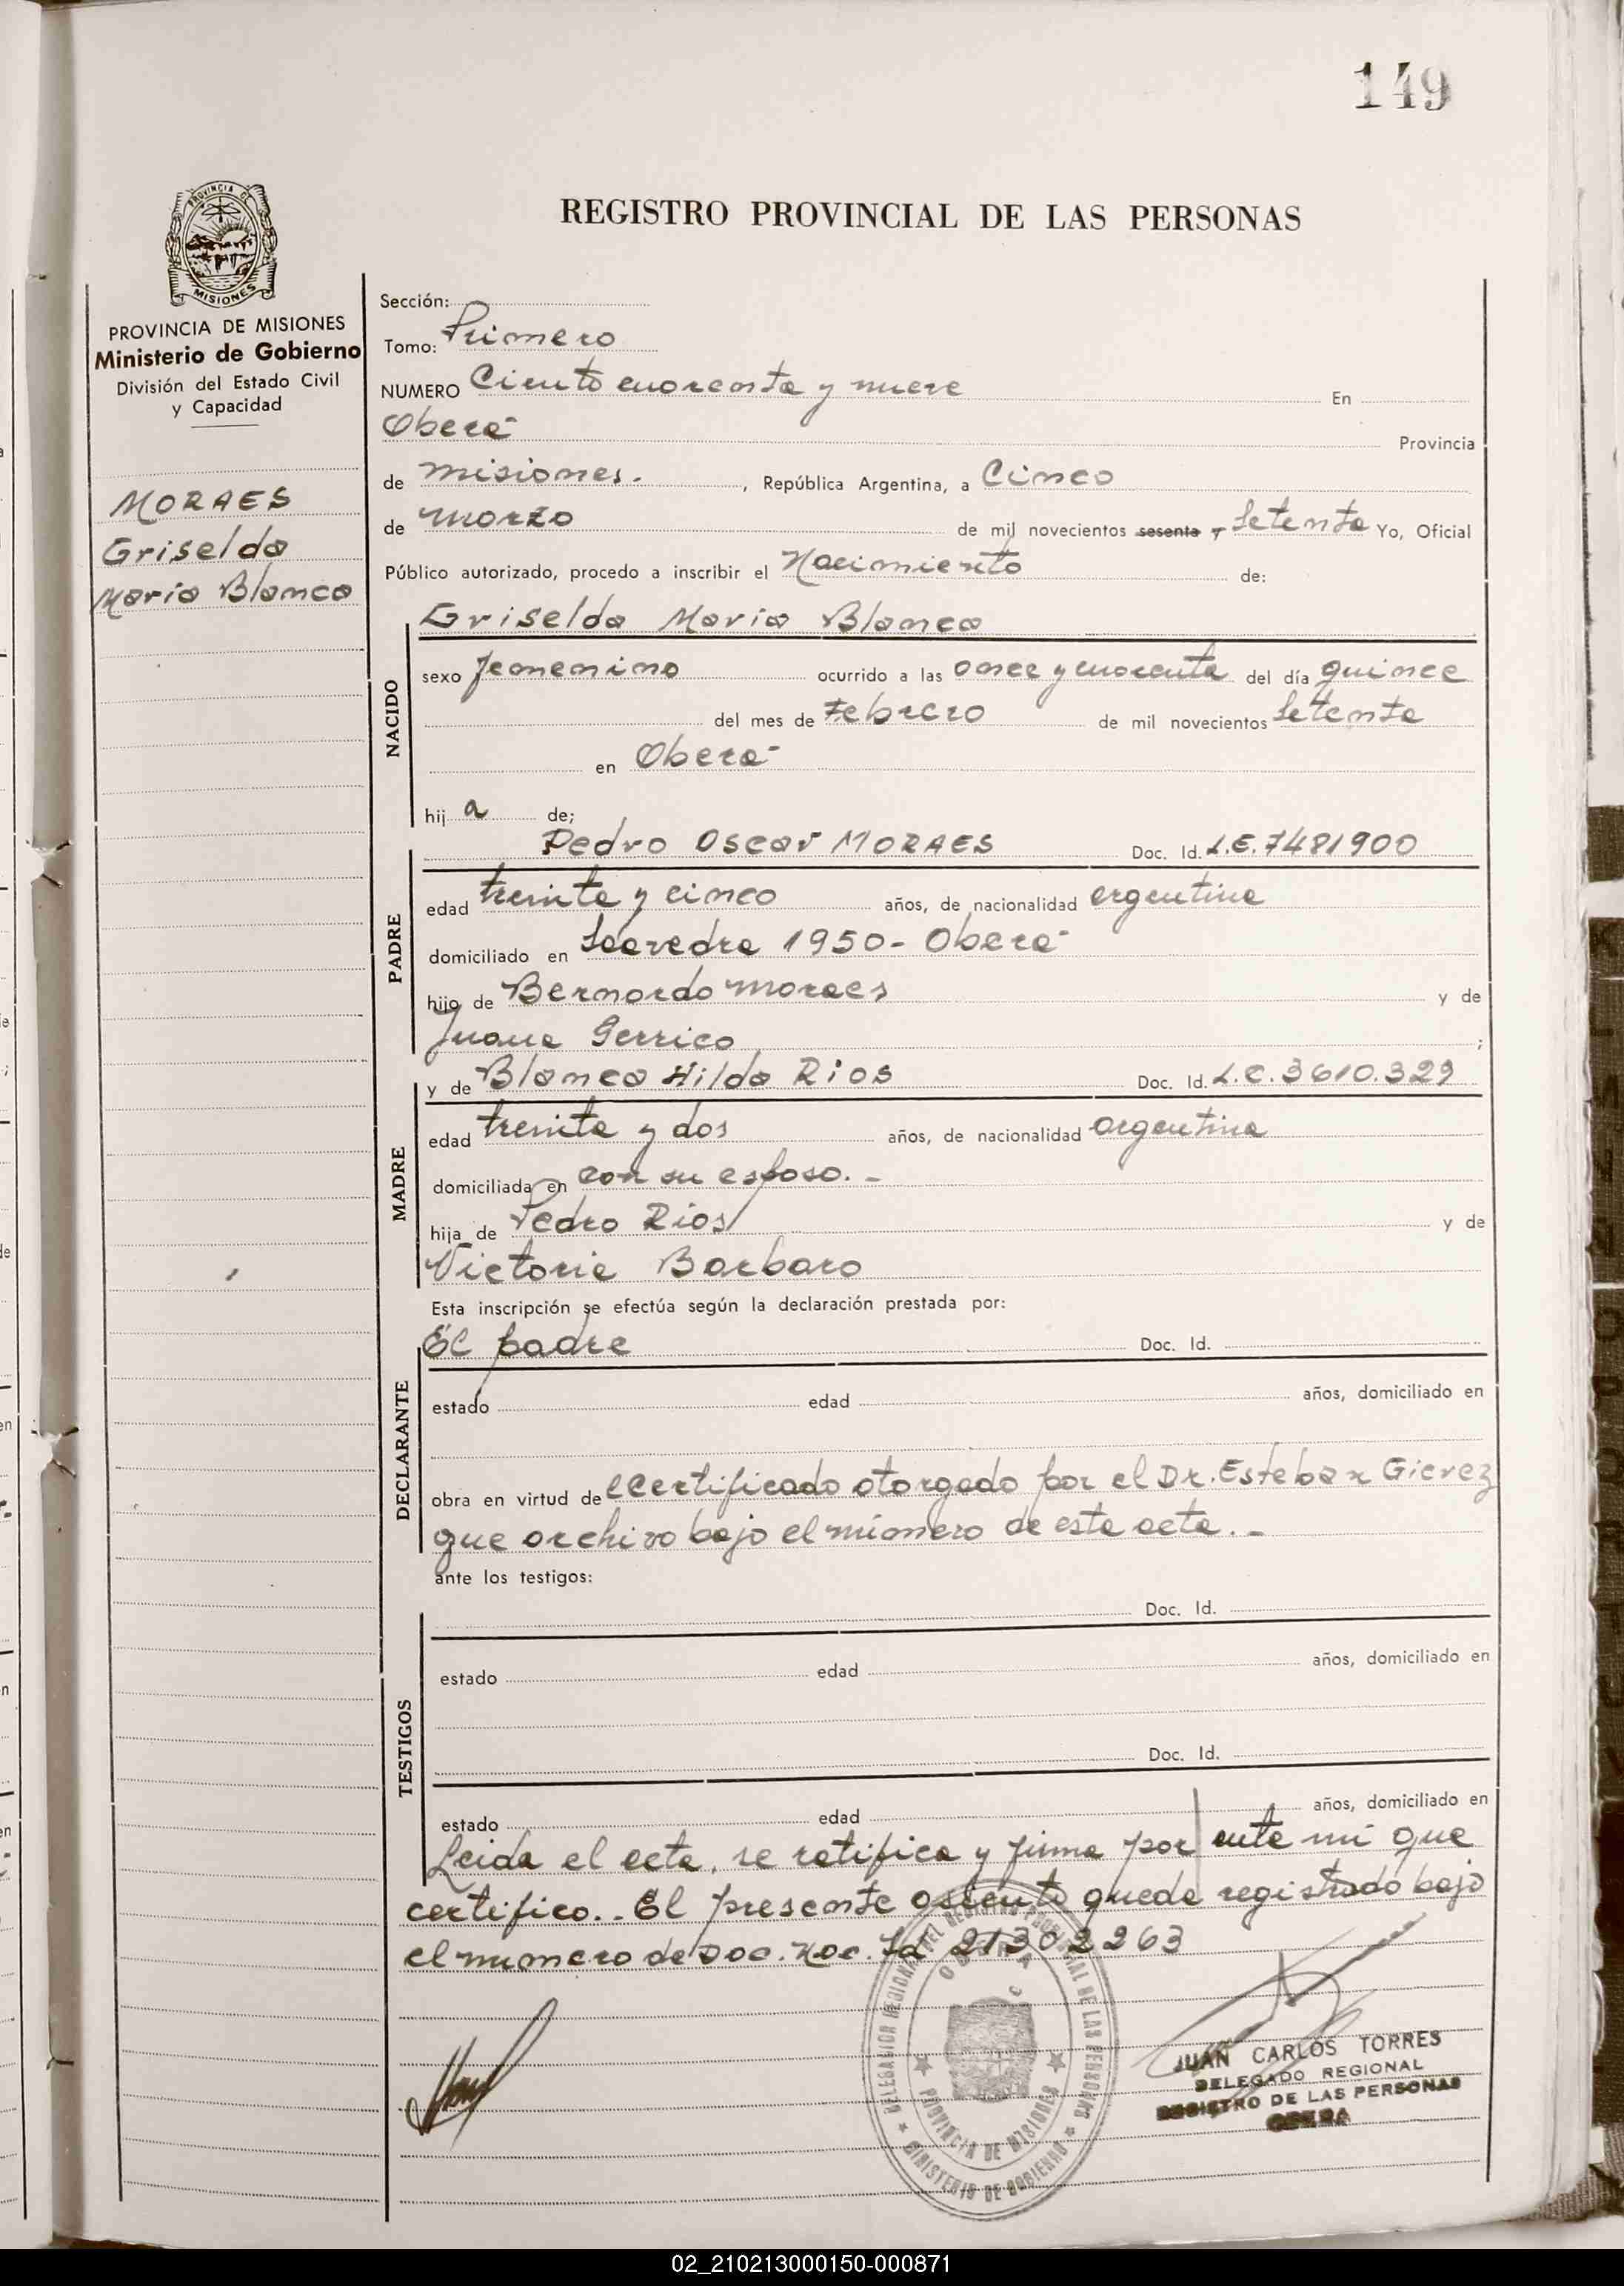 149
REGISTRO PROVINCIAL DE LAS PERSONAS
PROVINCIA DE MISIONES
Ministerio de Gobierno
División del Estado Civil
y Capacidad
MORAES
Griselda
María Blanca
Sección:
Tomo: Primero
NUMERO Ciento cuarenta y nueve En
Oberá Provincia
de misiones. , República Argentina, a Cinco
de marzo de mil novecientos sesenta y Setenta Yo, Oficial
Público autorizado, procedo a inscribir el Nacimiento de:
Griselda María Blanca
NACIDO
sexo femenino ocurrido a las once y cuarenta del día quince
del mes de Febrero de mil novecientos Setenta
en Oberá
hij a de;
Pedro Oscar MORAES Doc. Id. L.E. 7481900
PADRE
edad treinta y cinco años, de nacionalidad argentina
domiciliado en Saavedra 1950- Oberá
hijo de Bernardo moraes y de
Juana Gerrico ;
y de Blanca Hilda Rios Doc. Id. L.C. 3610.329
MADRE
edad treinta y dos años, de nacionalidad argentina
domiciliada en con su esposo. -
hija de Pedro Rios y de
Victoria Barbaro
Esta inscripción se efectúa según la declaración prestada por:
El padre Doc. Id.
DECLARANTE
estado edad años, domiciliado en
obra en virtud de certificado otorgado por el Dr. Esteban
que archivo bajo el número de esta acta. -
ante los testigos:
Doc. Id.
TESTIGOS
estado edad años, domiciliado en
Doc. Id.
estado edad años, domiciliado en
Leida el acta, se ratifica y firma por ante mi que
certifico.. El presente asiento queda registrado bajo
el numero de Doc. Nac. Id 21302263
DELEGACION REGIONAL DEL REGISTRO PROVINCIAL DE LAS PERSONAS
PROVINCIA DE MISIONES
MINISTERIO DE GOBIERNO
JUAN CARLOS TORRES
DELEGADO REGIONAL
REGISTRO DE LAS PERSONAS
OBERA
02_210213000150-000871